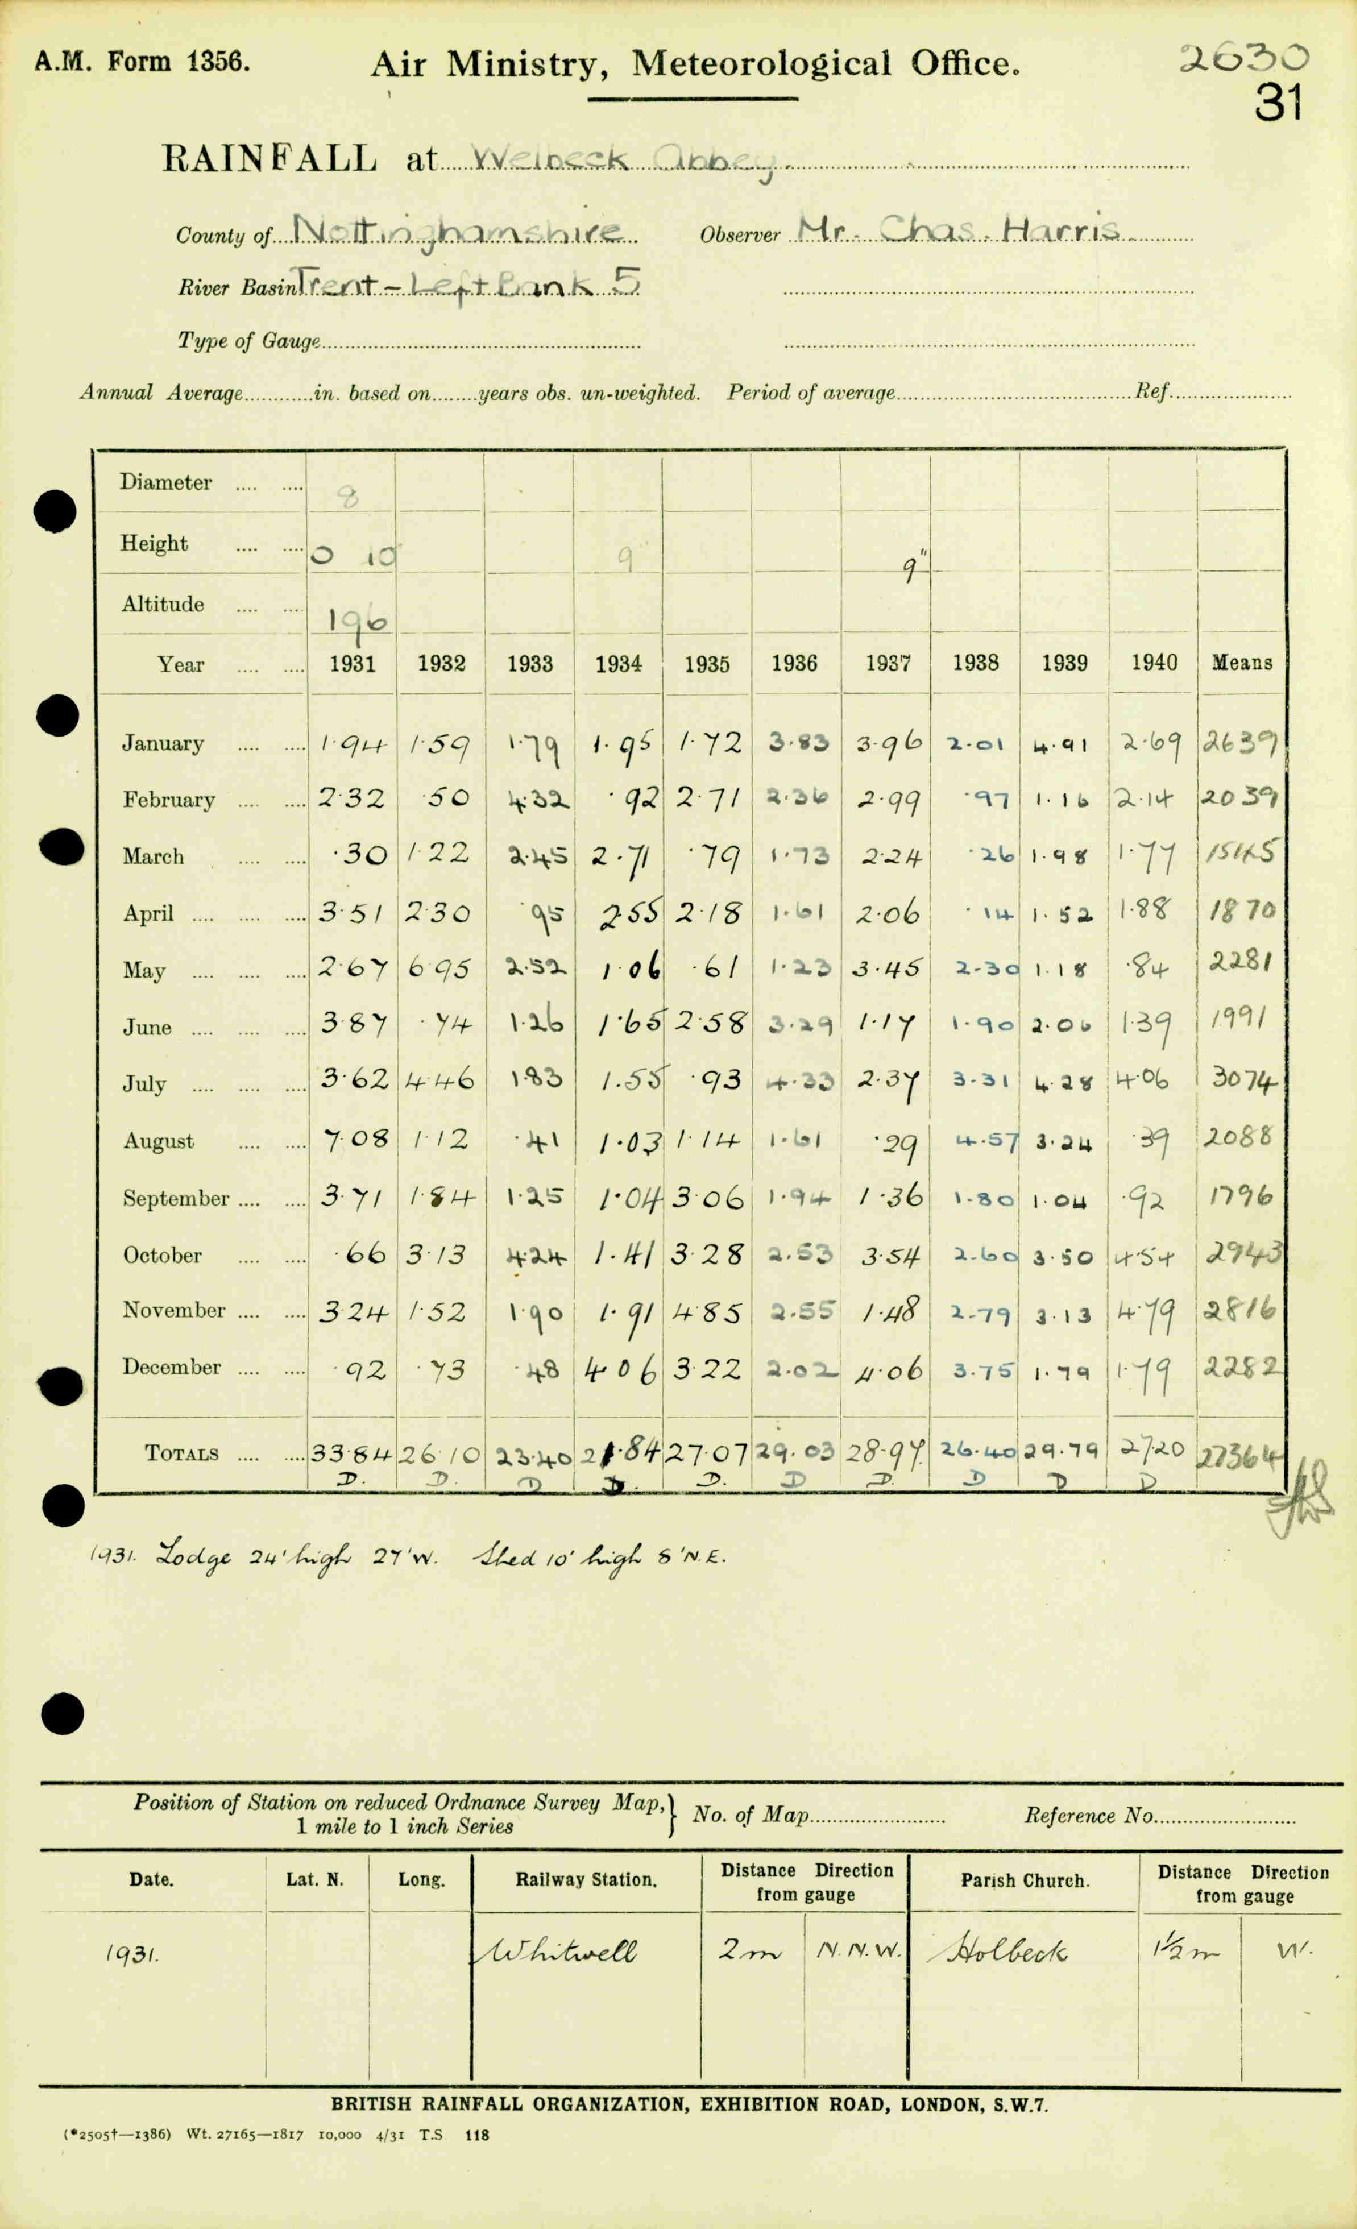 A.M. Form 1356. Air Ministry, Meteorological Office. 2630
31
RAINFALL at Welbeck Abbey
County of Nottinghamshire Observer Mr. Chas. Harris
River Basin Trent - Left Bank 5
Type of Gauge
Annual Average in. based on years obs. un-weighted. Period of average Ref.
Diameter 8
Height 0 10 9 9"
Altitude 196
Year 1931 1932 1933 1934 1935 1936 1937 1938 1939 1940 Means
January 1.94 1.59 1.79 1.95 1.72 3.83 3.96 2.01 4.91 2.69 2639
February 2.32 .50 4.32 .92 2.71 2.36 2.99 .97 1.16 2.14 2039
March .30 1.22 2.45 2.71 .79 1.73 2.24 .26 1.98 1.77 1545
April 3.51 2.30 .95 2.55 2.18 1.61 2.06 .14 1.52 1.88 1870
May 2.67 6.95 2.52 1.06 .61 1.23 3.45 2.30 1.18 .84 2281
June 3.87 .74 1.26 1.65 2.58 3.29 1.17 1.90 2.06 1.39 1991
July 3.62 4.46 1.83 1.55 .93 4.33 2.37 3.31 4.28 4.06 3074
August 7.08 1.12 .41 1.03 1.14 1.61 .29 4.57 3.24 .39 2088
September 3.71 1.84 1.25 1.04 3.06 1.94 1.36 1.80 1.04 .92 1796
October .66 3.13 4.24 1.41 3.28 2.53 3.54 2.60 3.50 4.54 2943
November 3.24 1.52 1.90 1.91 4.85 2.55 1.48 2.79 3.13 4.79 2816
December .92 .73 .48 4.06 3.22 2.02 4.06 3.75 1.79 1.79 2282
TOTALS 33.84 26.10 23.40 21.84 27.07 29.03 28.97 26.40 29.79 27.20 27364
D. D. D D. D. D D. D D D
1931. Lodge 24' high 27' W. Shed 10' high 8' N.E.
Position of Station on reduced Ordnance Survey Map, No. of Map Reference No.
1 mile to 1 inch Series
Date. Lat. N. Long. Railway Station. Distance Direction from gauge Parish Church. Distance Direction from gauge
1931. Whitwell 2 m N.N.W. Holbeck 1½ m W.
BRITISH RAINFALL ORGANIZATION, EXHIBITION ROAD, LONDON, S.W.7.
(*2505†—1386) Wt. 27165—1817 10,000 4/31 T.S 118